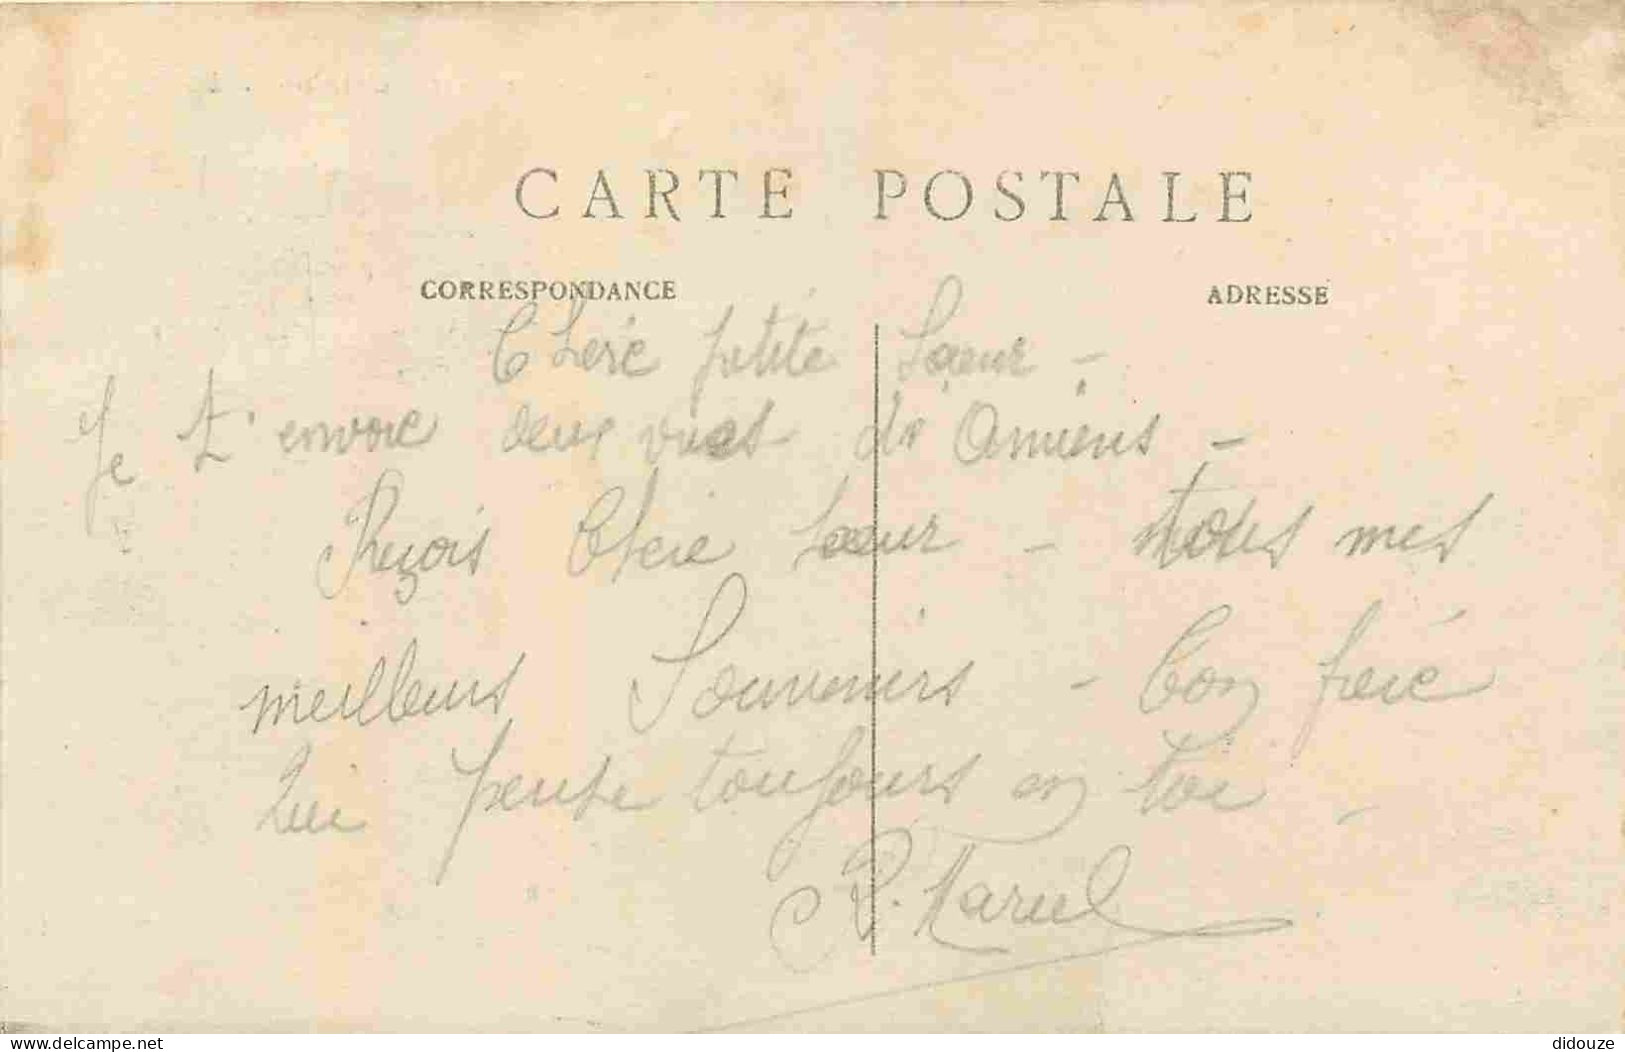 CARTE POSTALE
CORRESPONDANCE
ADRESSE
Chère petite Sœur -
Je t'envoie deux vues d' Amiens -
Reçois Chère sœur - tous mes
meilleurs Souvenirs - Ton frère
qui pense toujours en toi -
delcampe.net
didouze